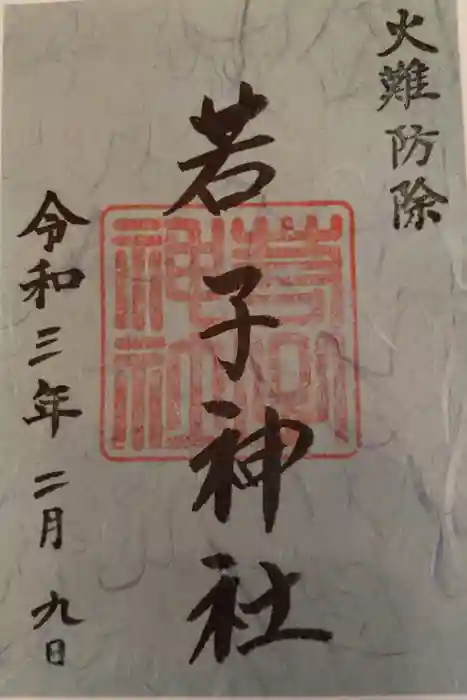 火難防除
若子神社
令和三年二月九日